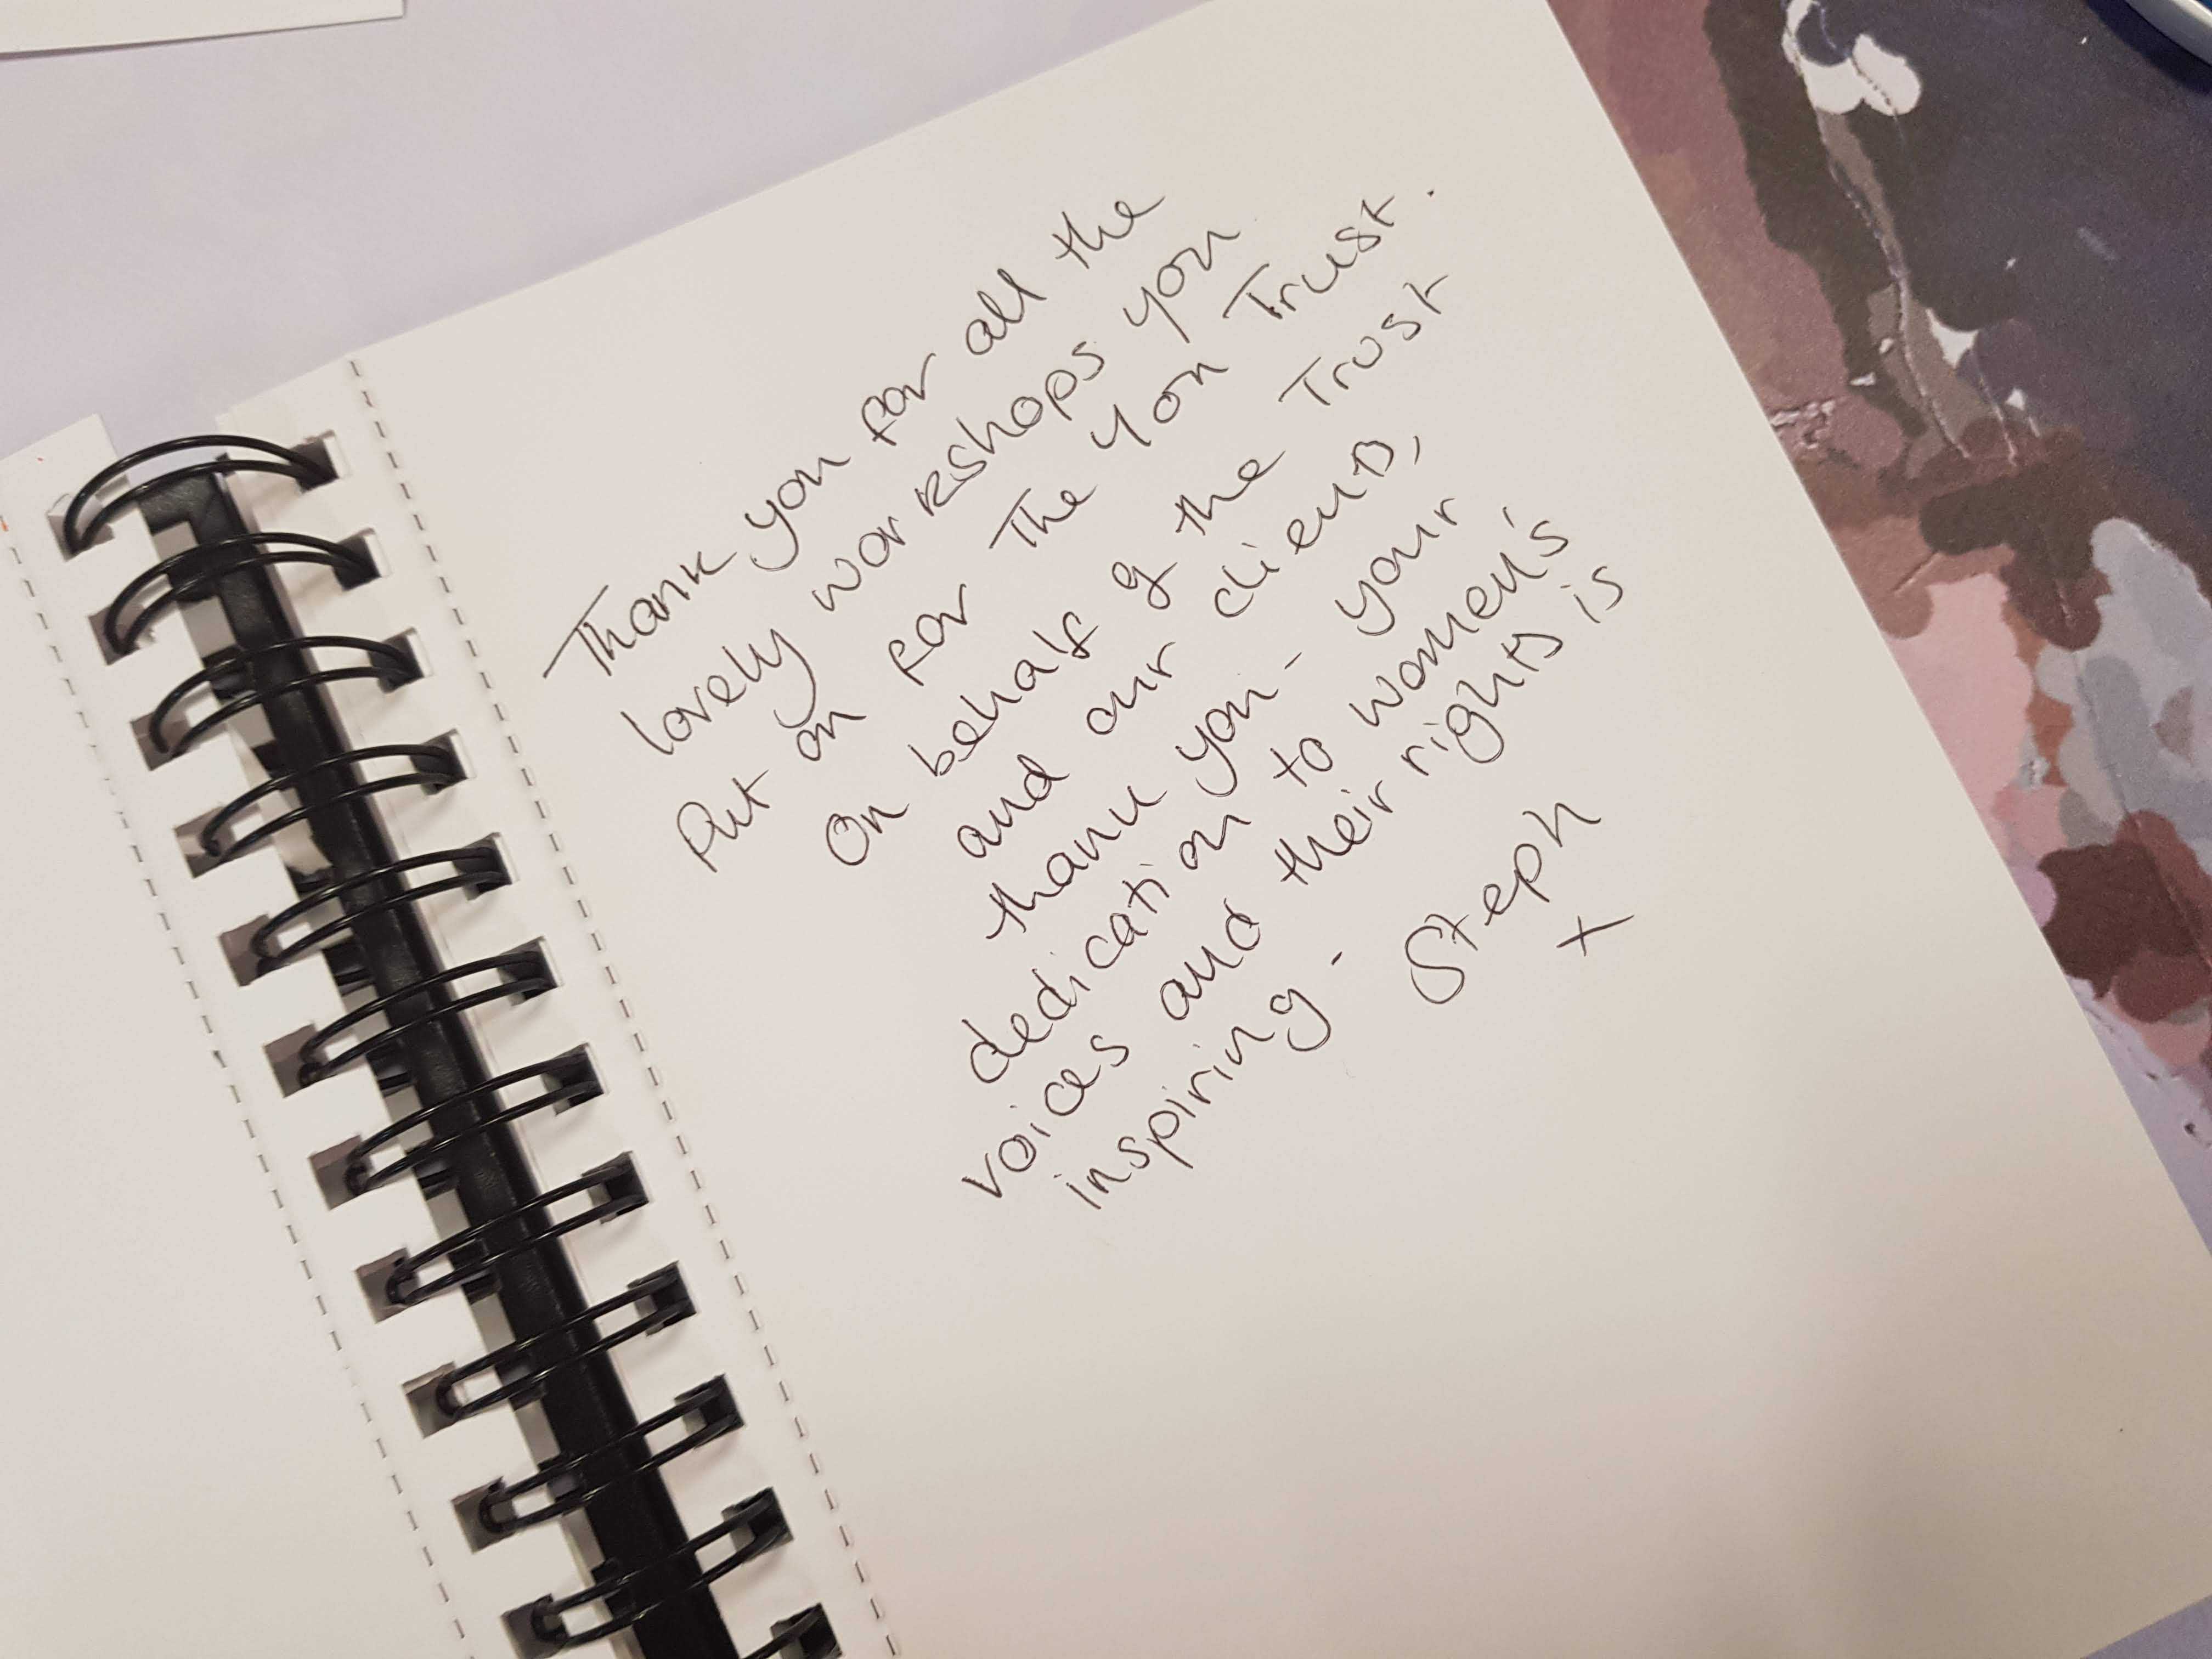 Thank you for all the
lovely workshops you
put on for The You Trust.
On behalf of the Trust
and our clients,
thank you - your
dedication to women's
voices and their rights is
inspiring -
Steph
x